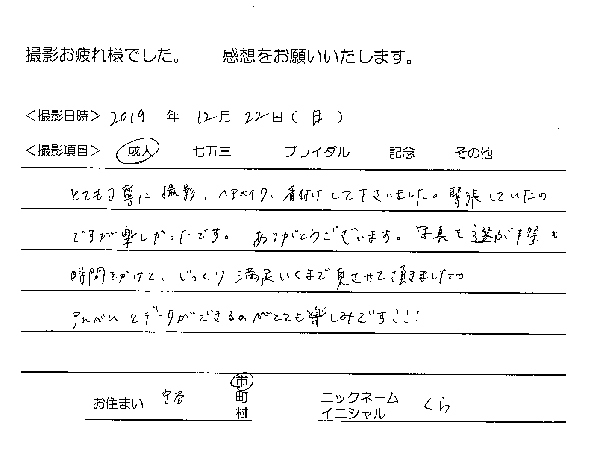 撮影お疲れ様でした。 感想をお願いいたします。
<撮影日時> 2019 年 12月 22日(日)
<撮影項目> 成人 七五三 ブライダル 記念 その他
とても丁寧に撮影、ヘアメイク、着付けして下さいました。緊張していたの
ですが楽しかったです。ありがとうございます。写真を選ぶ際も
時間をかけて、じっくり満足いくまで見させて頂きました
アルバムとデータができるのがとても楽しみです!!!
お住まい 守谷 市 町 村 ニックネーム イニシャル くら